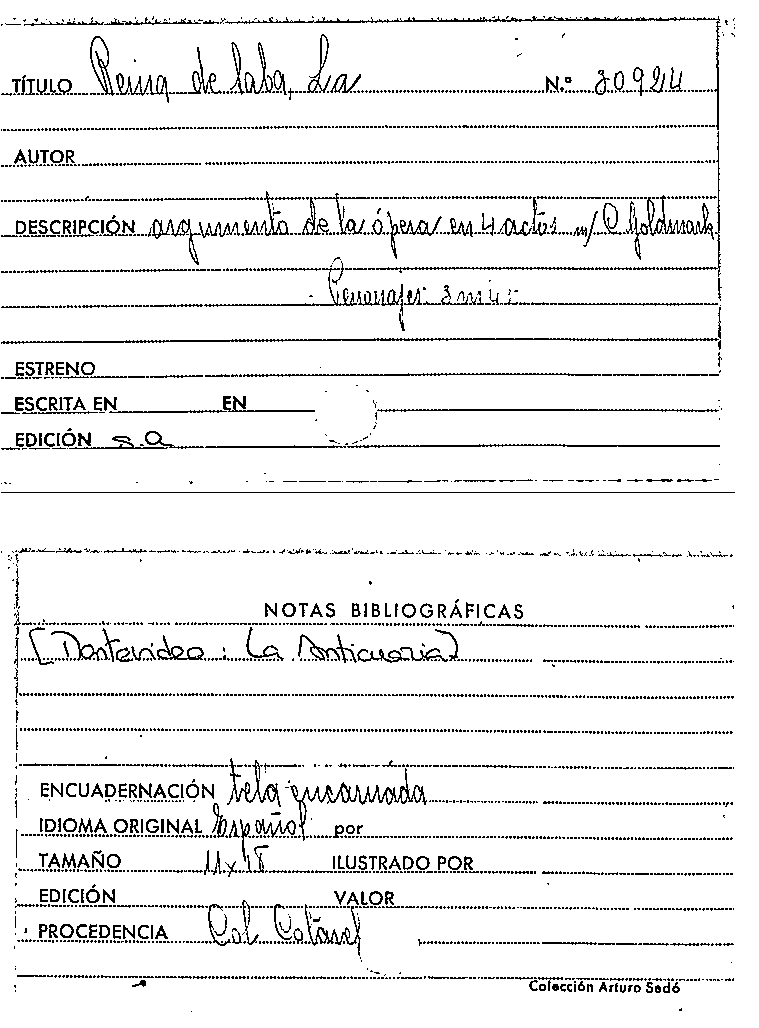 TÍTULO Reina de Saba, La N.º 30924
AUTOR
DESCRIPCIÓN argumento de la ópera en 4 actos m/ C Goldmark
Personajes:
ESTRENO
ESCRITA EN EN
EDICIÓN s.a
NOTAS BIBLIOGRÁFICAS
[Montevideo: La Anticuaria]
ENCUADERNACIÓN tela encarnada
IDIOMA ORIGINAL Español por
TAMAÑO ILUSTRADO POR
EDICIÓN VALOR
PROCEDENCIA Col Cotarelo
Colección Arturo Sedó